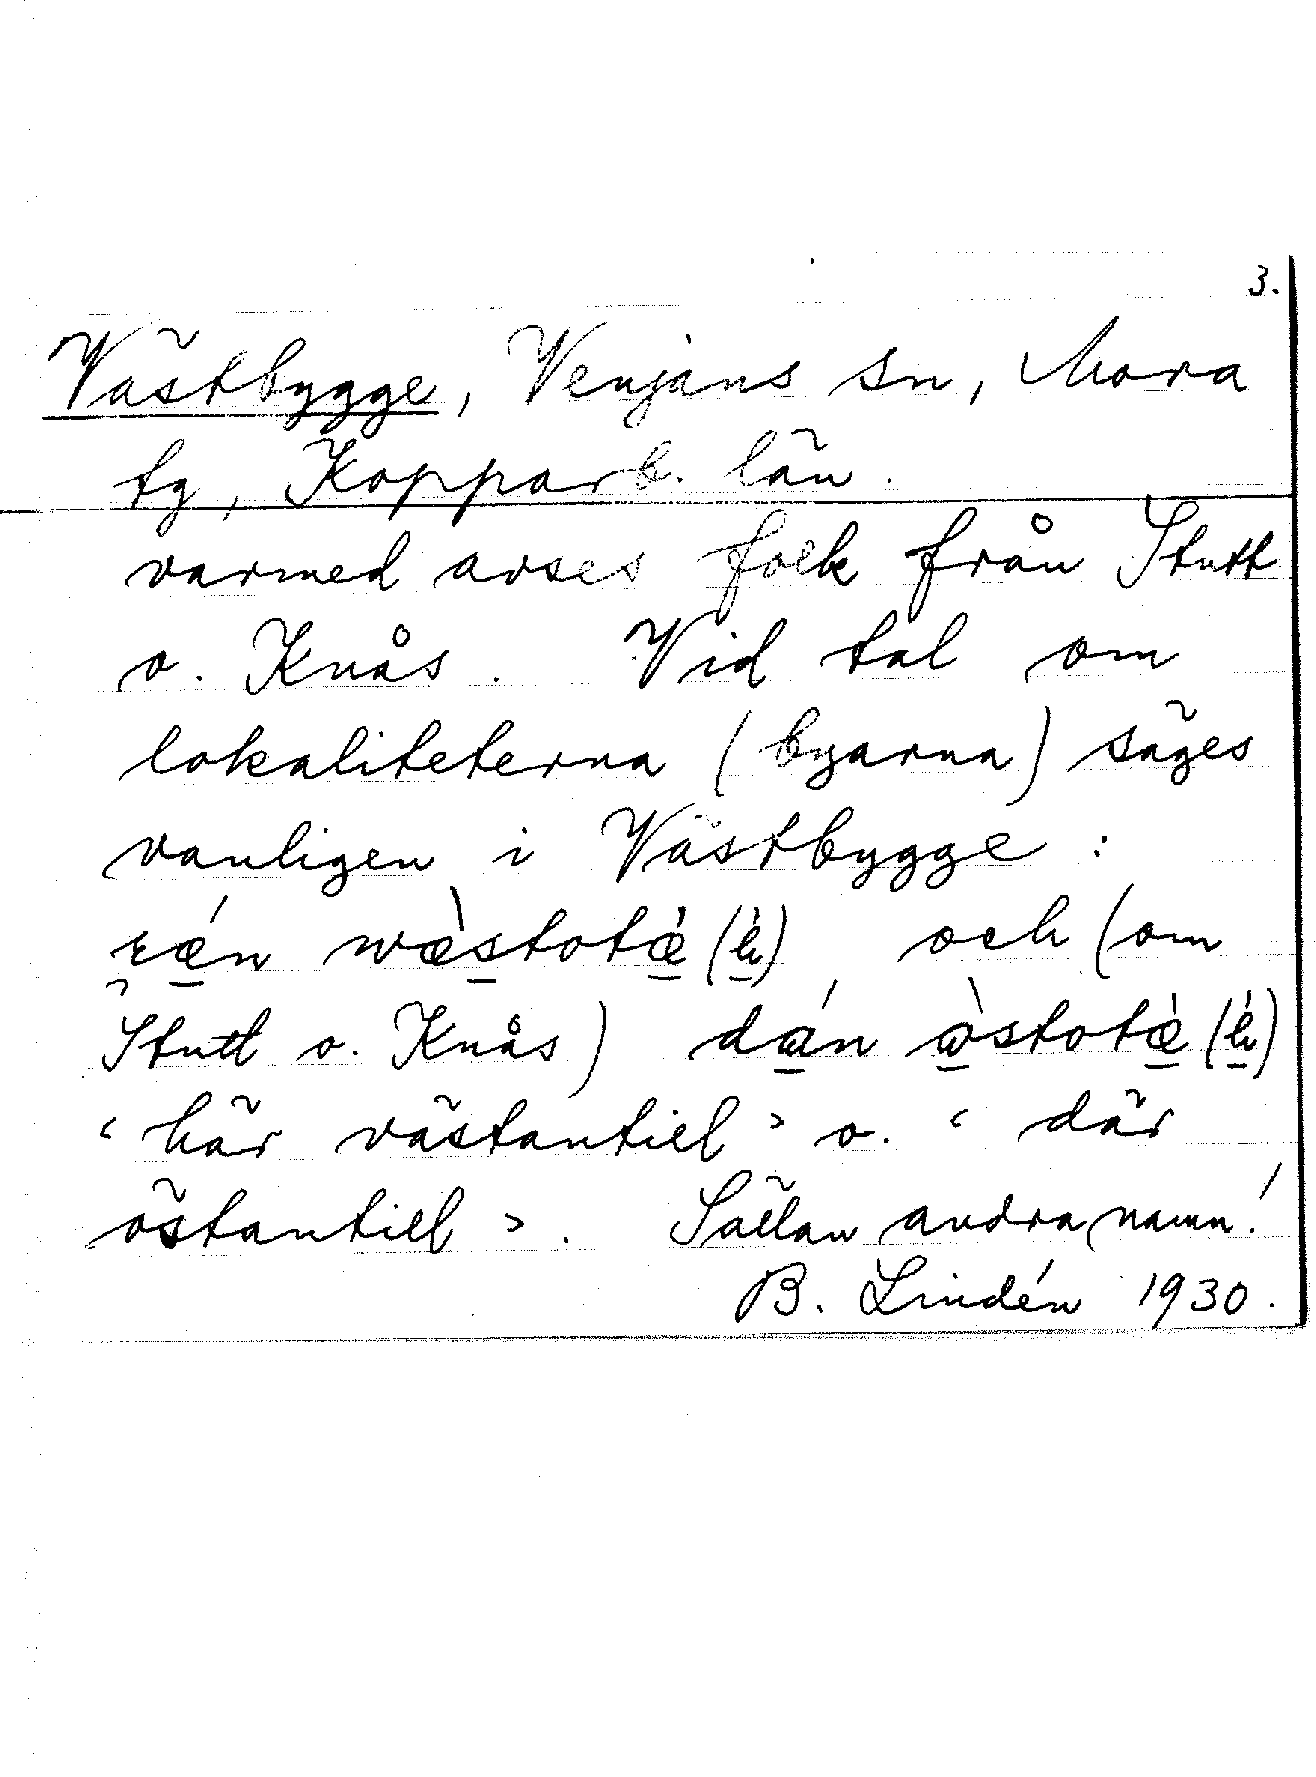 3.
Västbygge, Venjans sn, Mora
tg, Kopparb. län.
varmed avses folk från Stutt
o. Knås. Vid tal om
lokaliteterna (byarna) säges
vanligen i Västbygge:
och (om
Stutt o. Knås)
‘här västantill’ o. ‘där
östantill’. Sällan andra namn!
B. Lindén 1930.